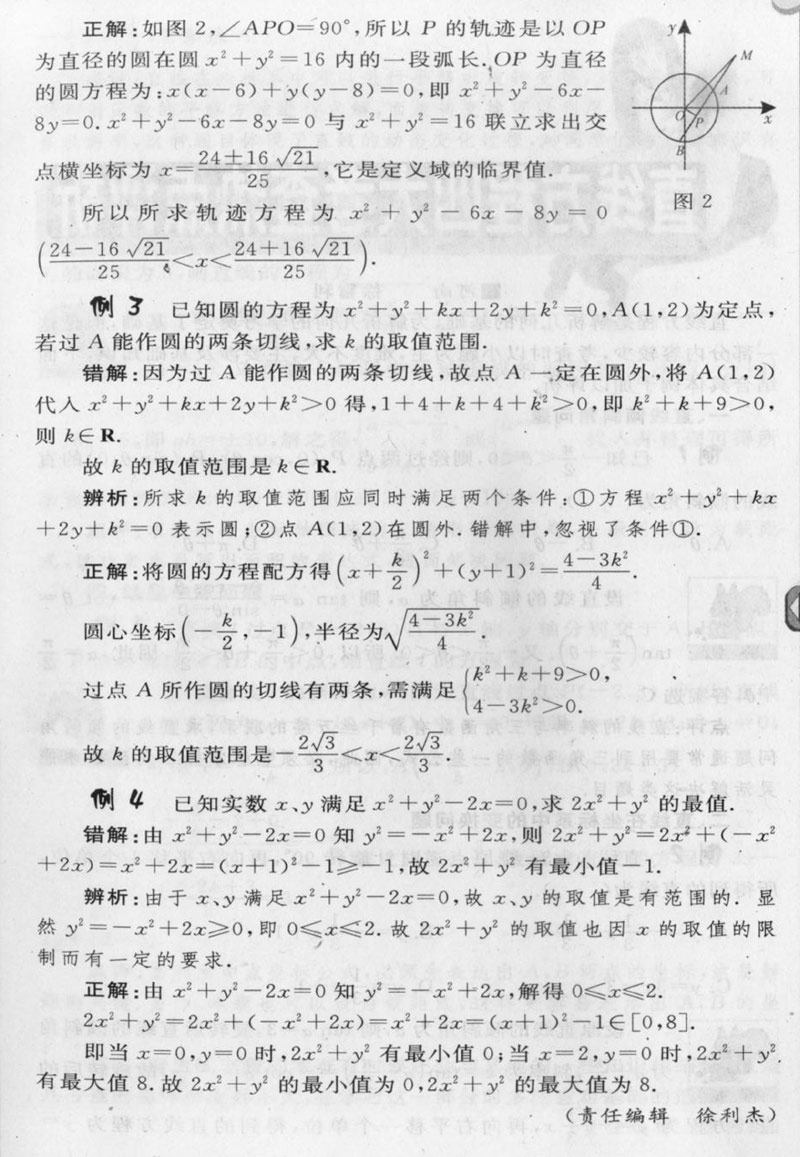 正解:如图 2,∠APO=90°,所以 P 的轨迹是以 OP
为直径的圆在圆 x²+y²=16 内的一段弧长.OP 为直径
的圆方程为:x(x-6)+y(y-8)=0,即 x²+y²-6x-
8y=0.x²+y²-6x-8y=0 与 x²+y²=16 联立求出交
点横坐标为 x=(24±16√21)/25,它是定义域的临界值.
所以所求轨迹方程为 x²+y²-6x-8y=0
((24-16√21)/25<x<(24+16√21)/25).
y
M
A
O
P
x
B
图 2
例 3 已知圆的方程为 x²+y²+kx+2y+k²=0,A(1,2)为定点,
若过 A 能作圆的两条切线,求 k 的取值范围.
错解:因为过 A 能作圆的两条切线,故点 A 一定在圆外,将 A(1,2)
代人 x²+y²+kx+2y+k²>0 得,1+4+k+4+k²>0,即 k²+k+9>0,
则 k∈R.
故 k 的取值范围是 k∈R.
辨析:所求 k 的取值范围应同时满足两个条件:①方程 x²+y²+kx
+2y+k²=0 表示圆;②点 A(1,2)在圆外.错解中,忽视了条件①.
正解:将圆的方程配方得(x+k/2)²+(y+1)²=(4-3k²)/4.
圆心坐标(-k/2,-1),半径为√((4-3k²)/4).
过点 A 所作圆的切线有两条,需满足{k²+k+9>0,
4-3k²>0.
故 k 的取值范围是-2√3/3≤x≤2√3/3.
例 4 已知实数 x、y 满足 x²+y²-2x=0,求 2x²+y² 的最值.
错解:由 x²+y²-2x=0 知 y²=-x²+2x,则 2x²+y²=2x²+(-x²
+2x)=x²+2x=(x+1)²-1≥-1,故 2x²+y² 有最小值-1.
辨析:由于 x、y 满足 x²+y²-2x=0,故 x、y 的取值是有范围的. 显
然 y²=-x²+2x≥0,即 0≤x≤2.故 2x²+y² 的取值也因 x 的取值的限
制而有一定的要求.
正解:由 x²+y²-2x=0 知 y²=-x²+2x,解得 0≤x≤2.
2x²+y²=2x²+(-x²+2x)=x²+2x=(x+1)²-1∈[0,8].
即当 x=0,y=0 时,2x²+y² 有最小值 0;当 x=2,y=0 时,2x²+y²
有最大值 8.故 2x²+y² 的最小值为 0,2x²+y² 的最大值为 8.
(责任编辑 徐利杰)